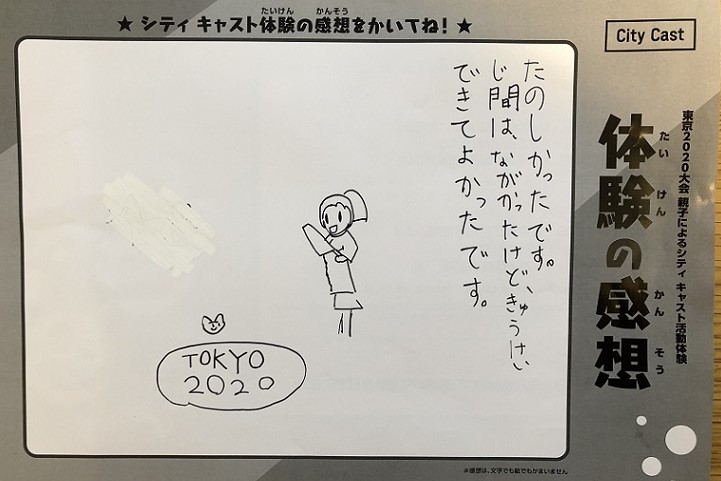 ★ シティ キャスト体験の感想をかいてね！ ★
たいけん かんそう
City Cast
東京2020大会 親子によるシティ キャスト活動体験
体験の感想
たい けん かん そう
たのしかったです。
じ間は、ながかったけど、きゅうけい
できてよかったです。
TOKYO
2020
※感想は、文字でも絵でもかまいません